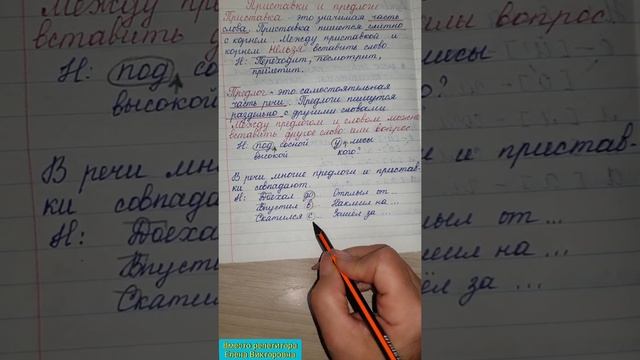 Приставки и предлоги
Приставка - это значимая часть
слова. Приставка пишется слитно
с корнем. Между приставкой и
корнем нельзя вставить слово.
Н: Переходит, посмотрит,
прилетит.
Предлог - это самостоятельная
часть речи. Предлоги пишутся
раздельно с другими словами.
Между предлогом и словом можно
вставить другое слово или вопрос.
Н: под сосной у лисы
высокой кого?
В речи многие предлоги и пристав-
ки совпадают.
Н: Доехал до Отплыл от...
Впустил в Наклеил на...
Скатился с Зашёл за ...
Вместо репетитора
Елена Викторовна